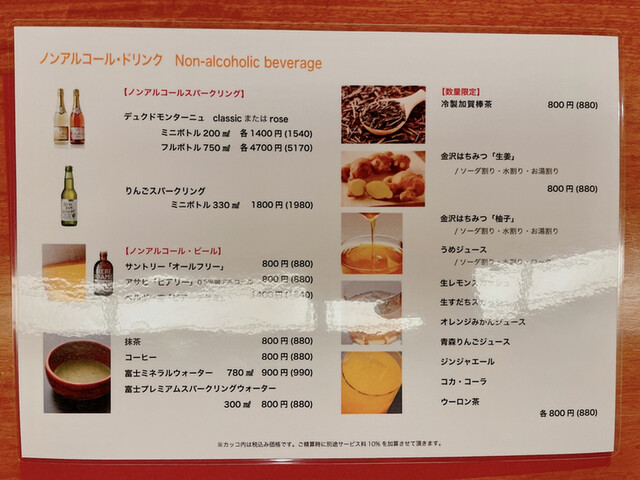 ノンアルコール・ドリンク Non-alcoholic beverage
【ノンアルコールスパークリング】
デュクドモンターニュ classic または rose
ミニボトル 200 ㎖ 各 1400 円 (1540)
フルボトル 750 ㎖ 各 4700 円 (5170)
りんごスパークリング
ミニボトル 330 ㎖ 1800 円 (1980)
【ノンアルコール・ビール】
サントリー「オールフリー」 800 円 (880)
アサヒ「ビアリー」 800 円 (880)
抹茶 800 円 (880)
コーヒー 800 円 (880)
富士ミネラルウォーター 780 ㎖ 900 円 (990)
富士プレミアムスパークリングウォーター
300 ㎖ 800 円 (880)
【数量限定】
冷製加賀棒茶 800 円 (880)
金沢はちみつ「生姜」
/ ソーダ割り・水割り・お湯割り
800 円 (880)
金沢はちみつ「柚子」
/ ソーダ割り・水割り・お湯割り
うめジュース
/ ソーダ割り・水割り・
生レモンス
生すだちス
オレンジみかんジュース
青森りんごジュース
ジンジャエール
コカ・コーラ
ウーロン茶
各 800 円 (880)
※カッコ内は税込み価格です。ご精算時に別途サービス料 10% を加算させて頂きます。